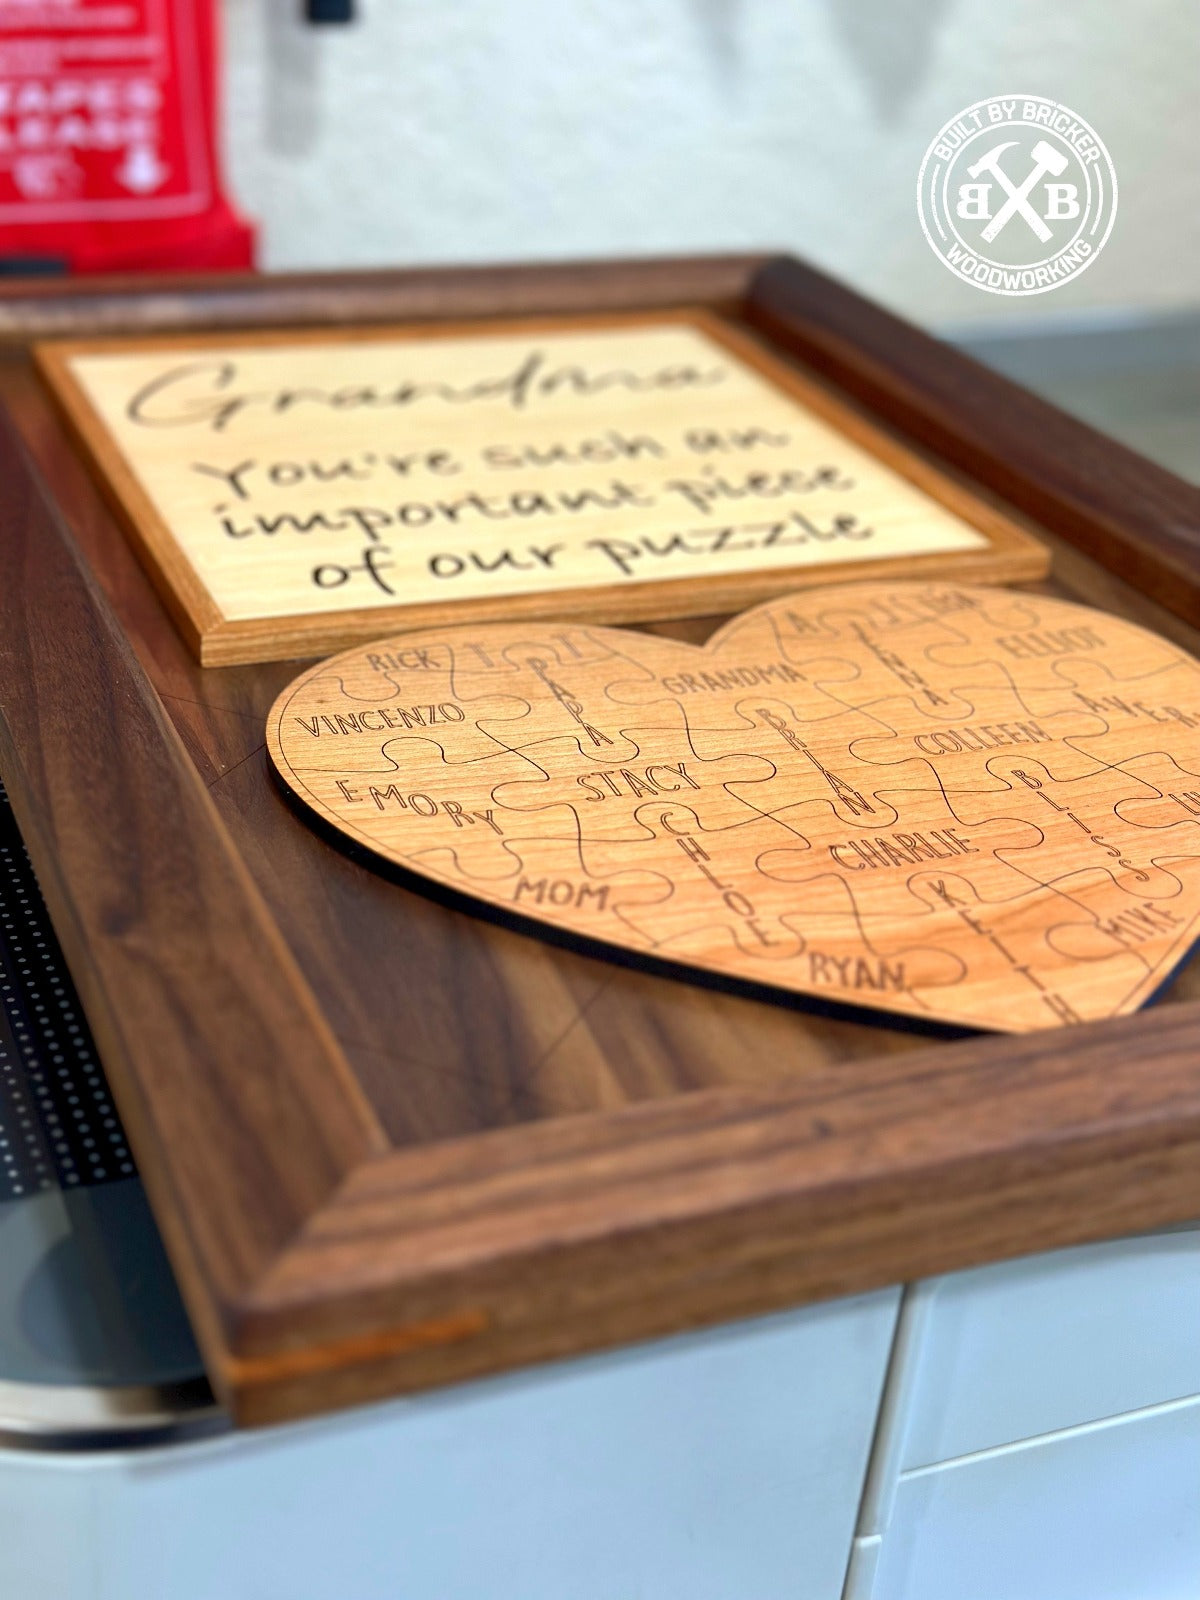 BUILT BY BRICKER
BXB
WOODWORKING
Grandma
You're such an
important piece
of our puzzle
RICK
PAPA
GRANDMA
ELLIOT
VINCENZO
BRIAN
COLLEEN
EMORY
STACY
BLISS
CHLOE
CHARLIE
MOM
KEITH
MIKE
RYAN